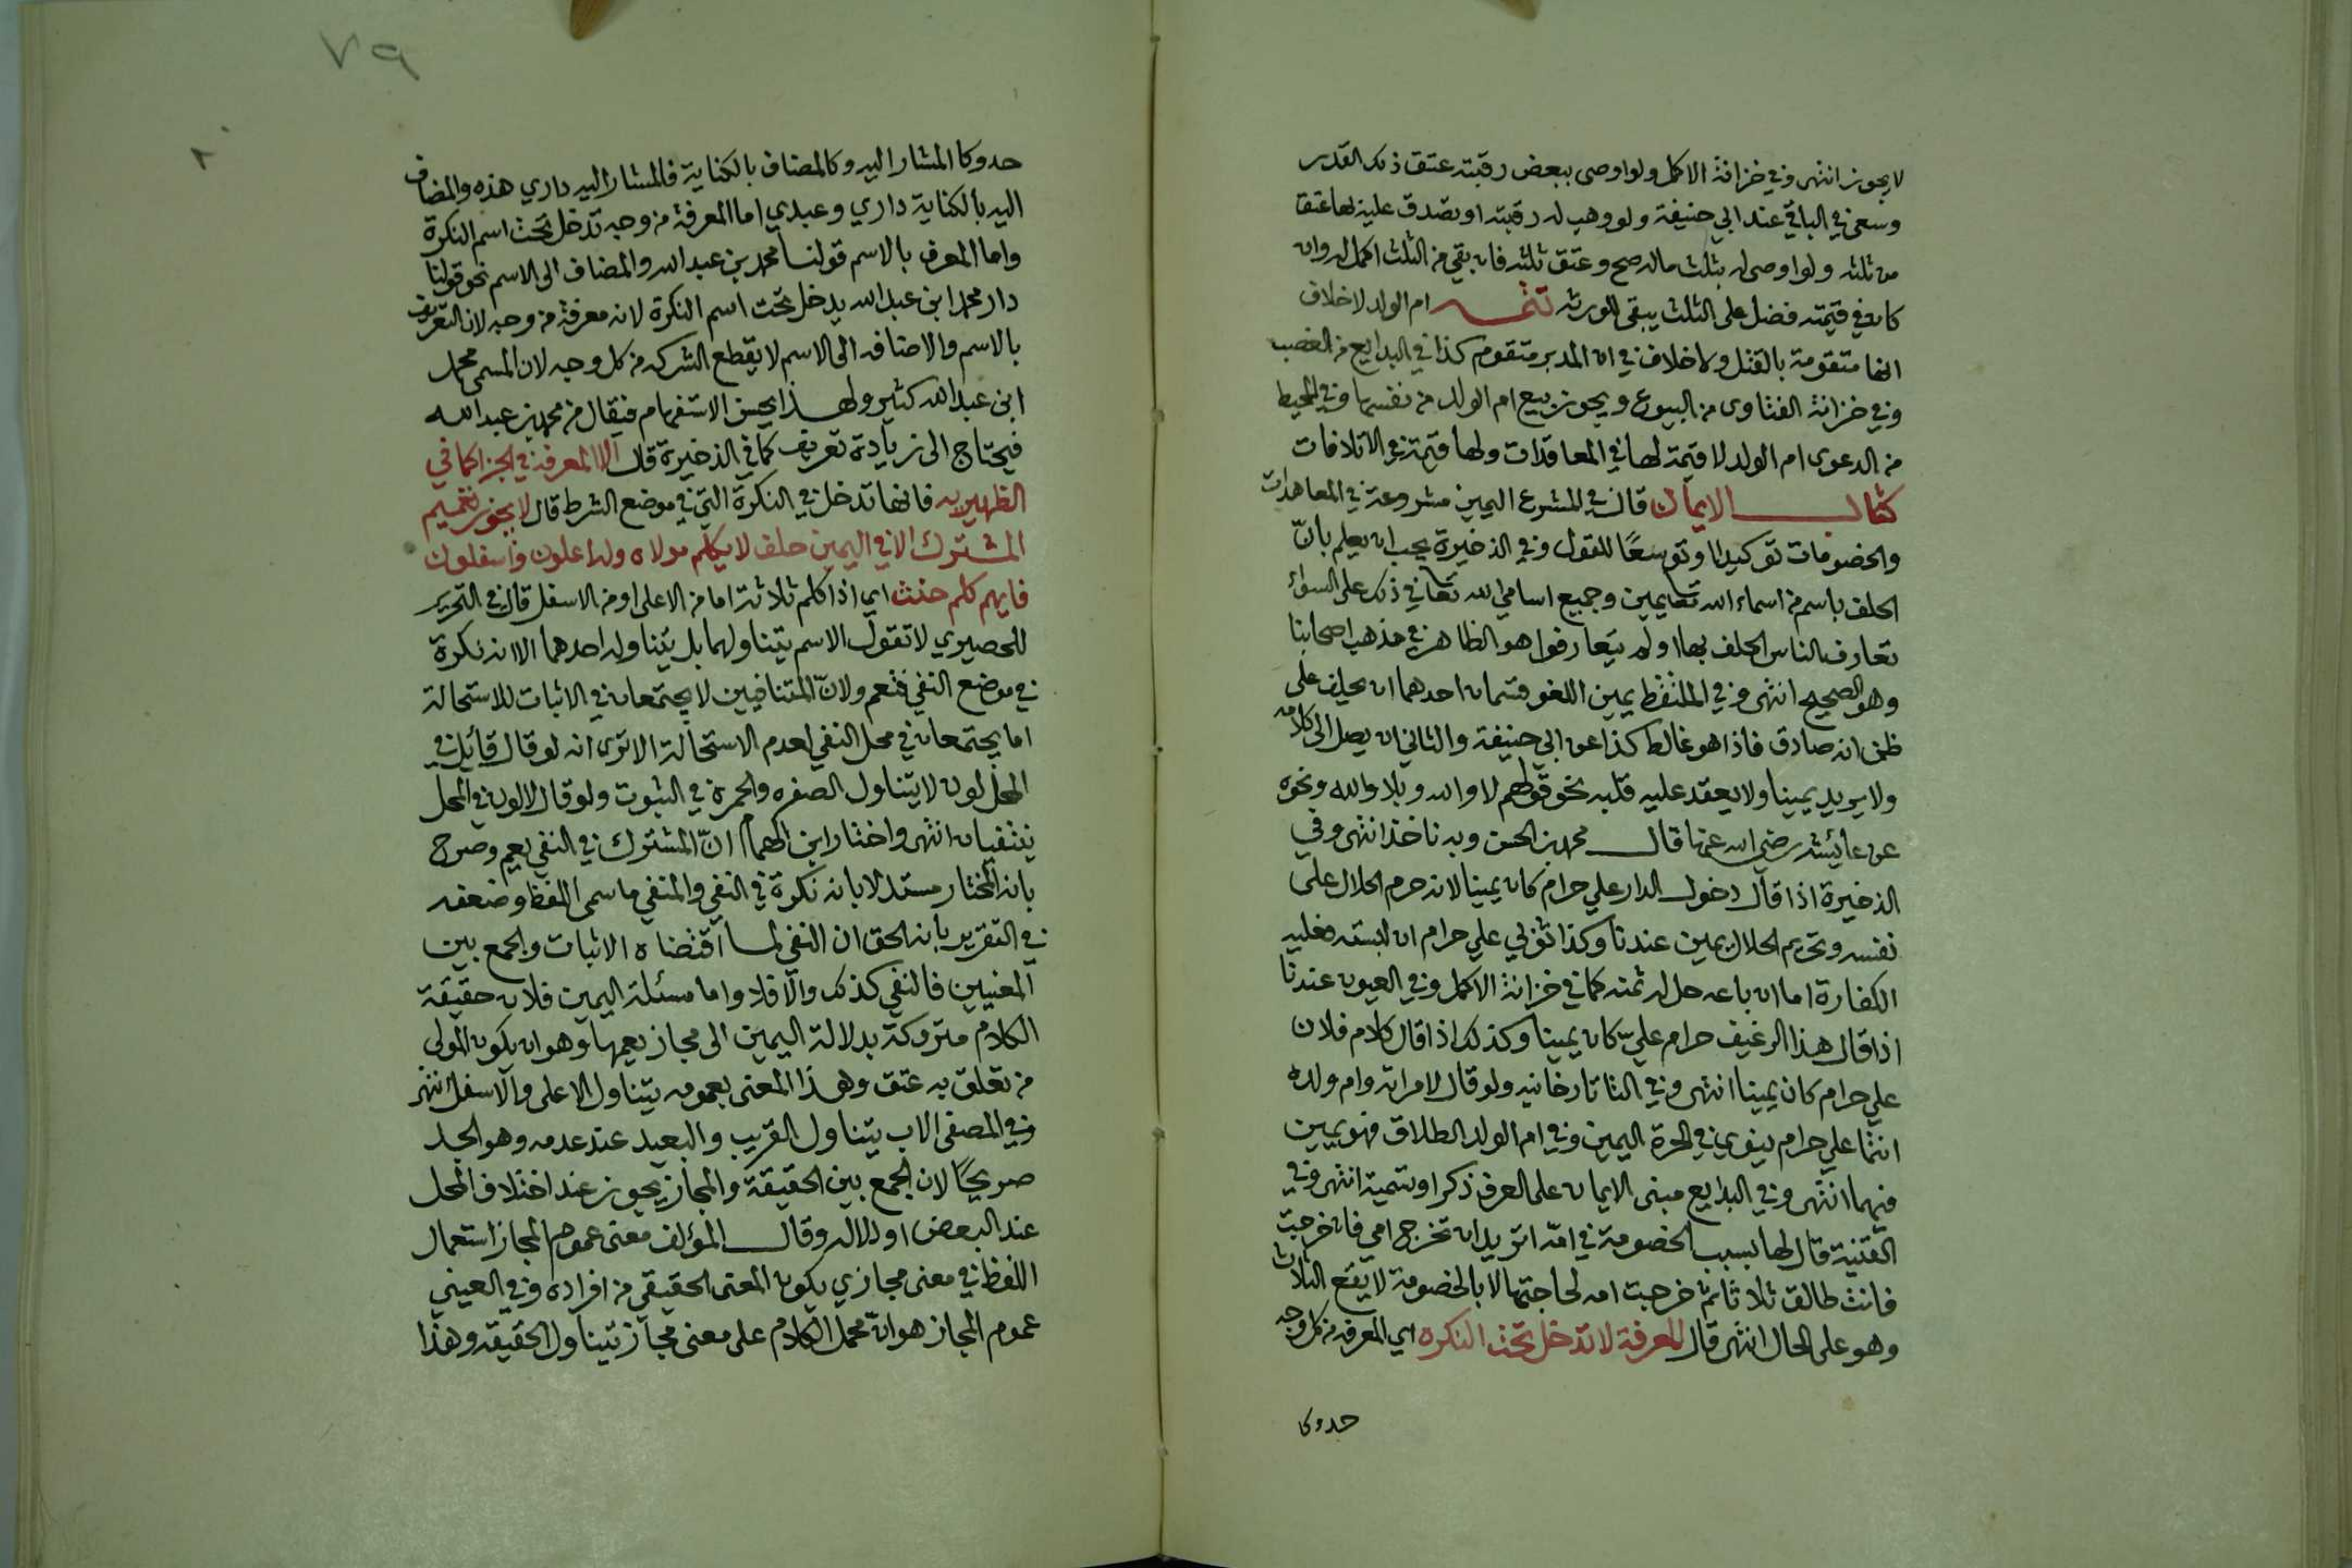 لا يجوز انتهى وفي خزانة الاكمل ولو اوصى ببعض رقبته عتق ذلك القدر
وسعى في الباقي عند ابي حنيفة ولو وهب له رقبته او تصدق عليه بها عتقا
من ثلثه ولو اوصى له بثلث ماله صح وعتق ثلثه فان بقي من الثلث اكمل له وان
كان في قيمته فضل على الثلث يبقى للورثه تتمه ام الولد لا خلاف
انها متقومة بالقتل ولا خلاف في ان المدبر متقوم كذا في البدايع من الغصب
وفي خزانة الفتاوى من البيوع ويجوز بيع ام الولد من نفسها وفي المحيط
من الدعوى ام الولد لا قيمة لها في المعاقدات ولها قيمة في الاتلافات
كتاب الايمان قال في المشرع اليمين مشروعة في المعاهدات
والخصومات توكيدا وتوسعًا للقول وفي الذخيرة يجب ان يعلم بانّ
الحلف باسم من اسماء الله تعا يمين وجميع اسامي الله تعا في ذلك على السواء
تعارف الناس الحلف بها او لم يتعارفوا هو الظاهر في مذهب اصحابنا
وهو الصحيح انتهى وفي الملتقط يمين اللغو قسمان احدهما ان يحلف على
ظن انه صادق فاذا هو غالط كذا عن ابي حنيفة والثاني ان يصل الى كلامه
ولا يريد يمينا ولا يعقد عليه قلبه نحو قولهم لا والله وبلا والله ونحوه
عن عائيشه رضي الله عنها قال محمد بن الحسن وبه ناخذ انتهى وفي
الذخيرة اذا قال دخول الدار علي حرام كان يمينا لانه حرم الحلال على
نفسه وتحريم الحلال يمين عندنا وكذا ثوبي علي حرام ان لبسته فعليه
الكفارة اما ان باعه حل له ثمنه كما في خزانة الاكمل وفي العيون عندنا
اذا قال هذا الرغيف حرام عليّ كان يمينا وكذلك اذا قال كلام فلان
علي حرام كان يمينا انتهى وفي التاتارخانيه ولو قال لامراته وام ولده
انتما علي حرام ينوي في الحرة اليمين وفي ام الولد الطلاق فهو يمين
فيهما انتهى وفي البدايع مبنى الايمان على العرف ذكرا وتسمية انتهى وفي
القنية قال لها بسبب الخصومة في امّه اتريد ان تخرج امي فان خرجت
فانت طالق ثلاثا ثم خرجت امه لحاجتها لا بالخصومة لا يقع الثلاث
وهو على الحال انتهى قال المعرفة لا تدخل تحت النكره اي المعرفه من كل وجه
حدوكا
٧٩
حدوكا المشار اليه وكالمضاف بالكناية فالمشار اليه داري هذه والمضاف
اليه بالكناية داري وعبدي اما المعرفة من وجه تدخل تحت اسم النكرة
واما المعرف بالاسم قولنا محمد بن عبد الله والمضاف الى الاسم نحو قولنا
دار محمد ابن عبد الله يدخل تحت اسم النكرة لانه معرفة من وجه لان التعريف
بالاسم والاضافه الى الاسم لا يقطع الشركه من كل وجه لان المسمى محمد
ابن عبد الله كثير ولهذا يحسن الاستفهام فيقال من محمد بن عبد الله
فيحتاج الى زيادة تعريف كما في الذخيرة قال الا المعرفة في الجزا كما في
الظهيريه فانها تدخل في النكرة التي في موضع الشرط قال لا يجوز تعميم
المشترك الا في اليمين حلف لا يكلم مولاه وله اعلون واسفلون
فايهم كلم حنث اي اذا كلم ثلاثة اما من الاعلى او من الاسفل قال في التحرير
للحصيري لا تقول الاسم يتناولهما بل يتناوله احدهما الا انه نكرة
في موضع النفي فتعم ولانّ المتنافيين لا يجتمعان في الاثبات للاستحالة
اما يجتمعان في محل النفي لعدم الاستحالة الا ترى انه لو قال قائل في
المحل لون لا يتناول الصفره والحمرة في الثبوت ولو قال لا لون في المحل
ينتفيان انتهى واختار ابن الهمام انّ المشترك في النفي يعم وصرح
بانه المختار مستدلا بانه نكرة في النفي والمنفي ما سمى اللفظ وضعفه
في التقرير بانه الحق ان النفي لما اقتضاه الاثبات والجمع بين
المعنيين فالنفي كذلك والا فلا واما مسئلة اليمين فلان حقيقة
الكلام متروكة بدلالة اليمين الى مجاز يعمها وهو ان يكون المولى
من تعلق به عتق وهذا المعنى بعمومه يتناول الاعلى والاسفل انتهى
وفي المصفى الاب يتناول القريب والبعيد عند عدمه وهو الجد
صريحًا لان الجمع بين الحقيقة والمجاز يجوز عند اختلاف المحل
عند البعض او دلاله وقال المؤلف معنى عموم المجاز استعمال
اللفظ في معنى مجازي يكون المعنى الحقيقي من افراده وفي العيني
عموم المجاز هو انّ محمل الكلام على معنى مجاز يتناول الحقيقه وهذا